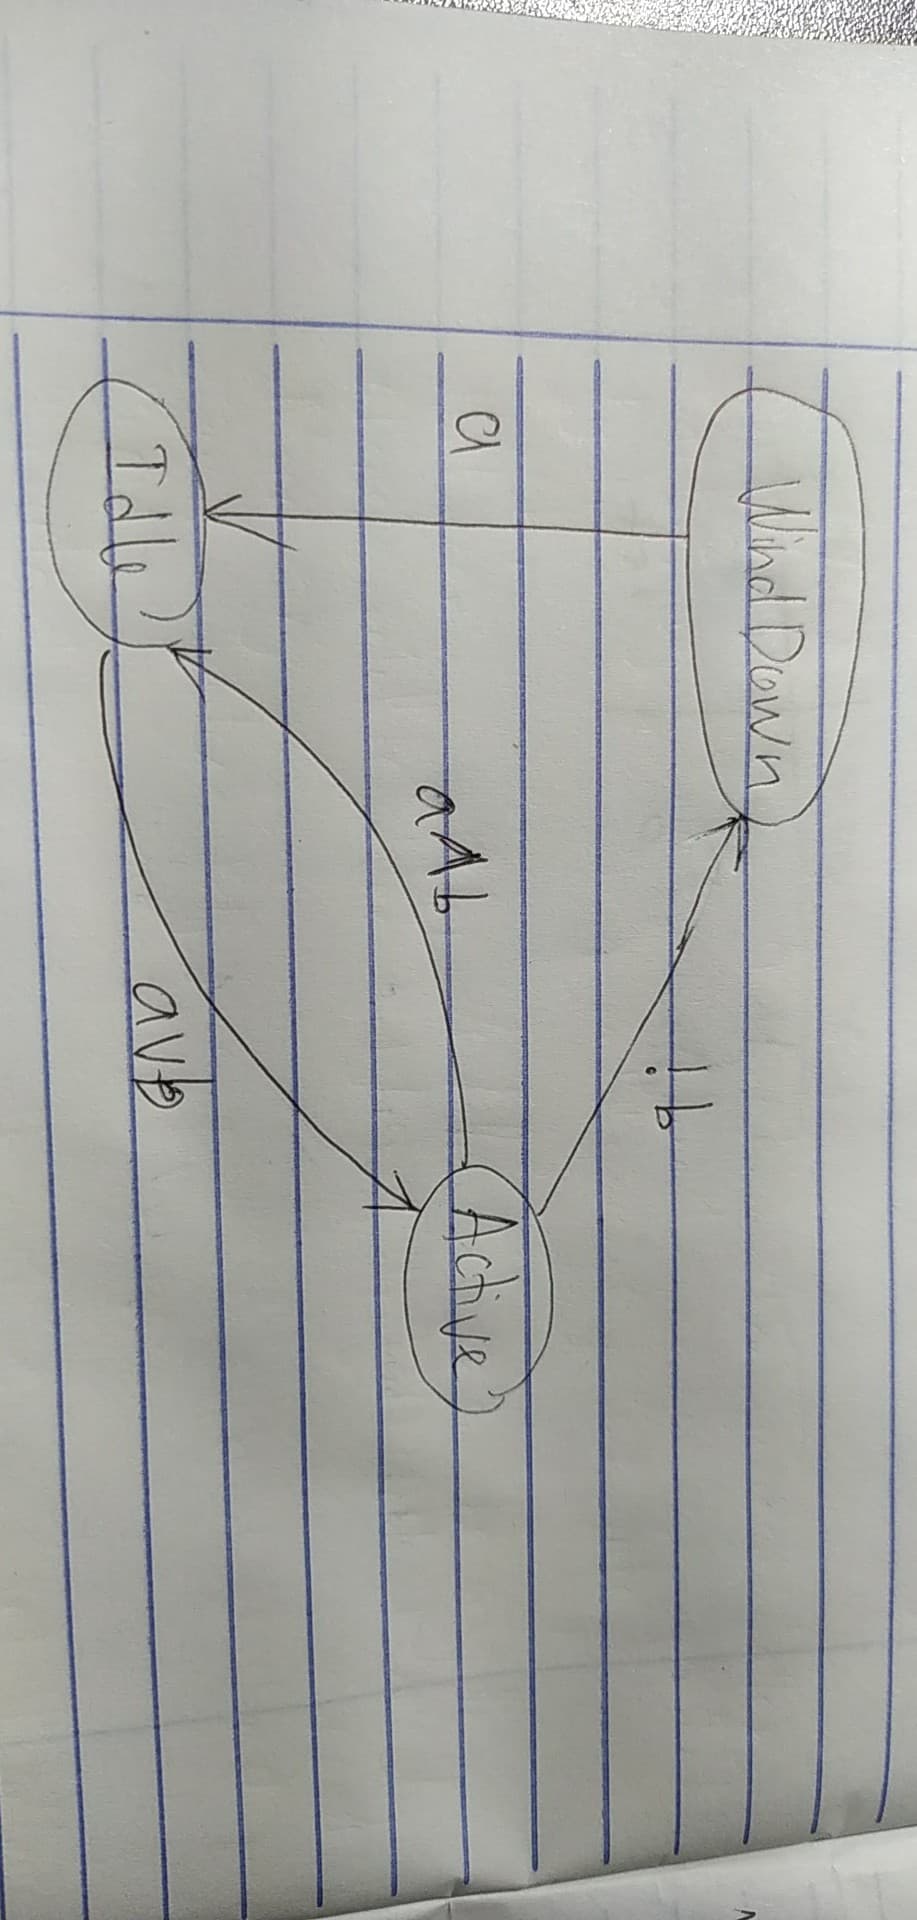 WindDown
!b
a
a∧b
Active
avb
Idle